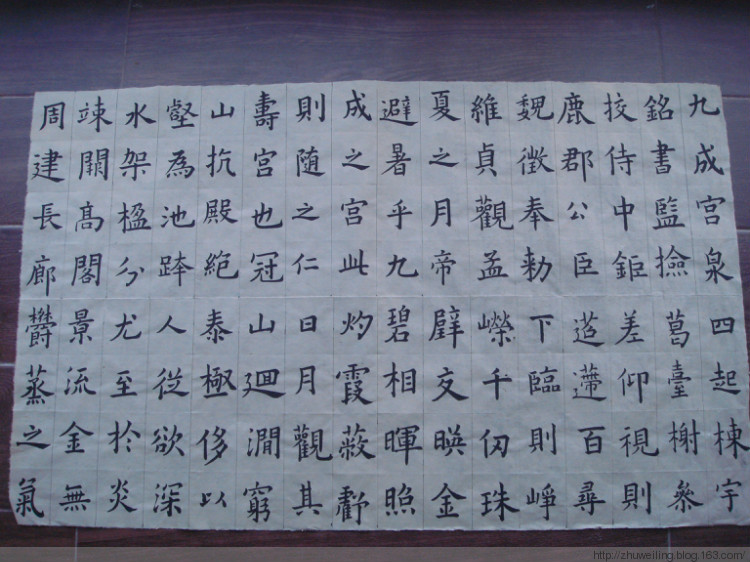 九成宮泉
銘書監撿
挍侍中鉅
鹿郡公臣
魏徵奉勅
維貞觀孟
夏之月帝
避暑乎九
成之宮此
則随之仁
壽宮也冠
山抗殿絕
壑為池跨
水架楹分
竦闕高閣
周建長廊
四起棟宇
葛臺榭參
差仰視則
迢遰百尋
下臨則崢
嶸千仞珠
璧交暎金
碧相暉照
灼霞蔽虧
日月觀其
山廻澗窮
泰極侈以
人從欲深
尤至於炎
景流金無
鬱蒸之氣
http://zhuweiling.blog.163.com/